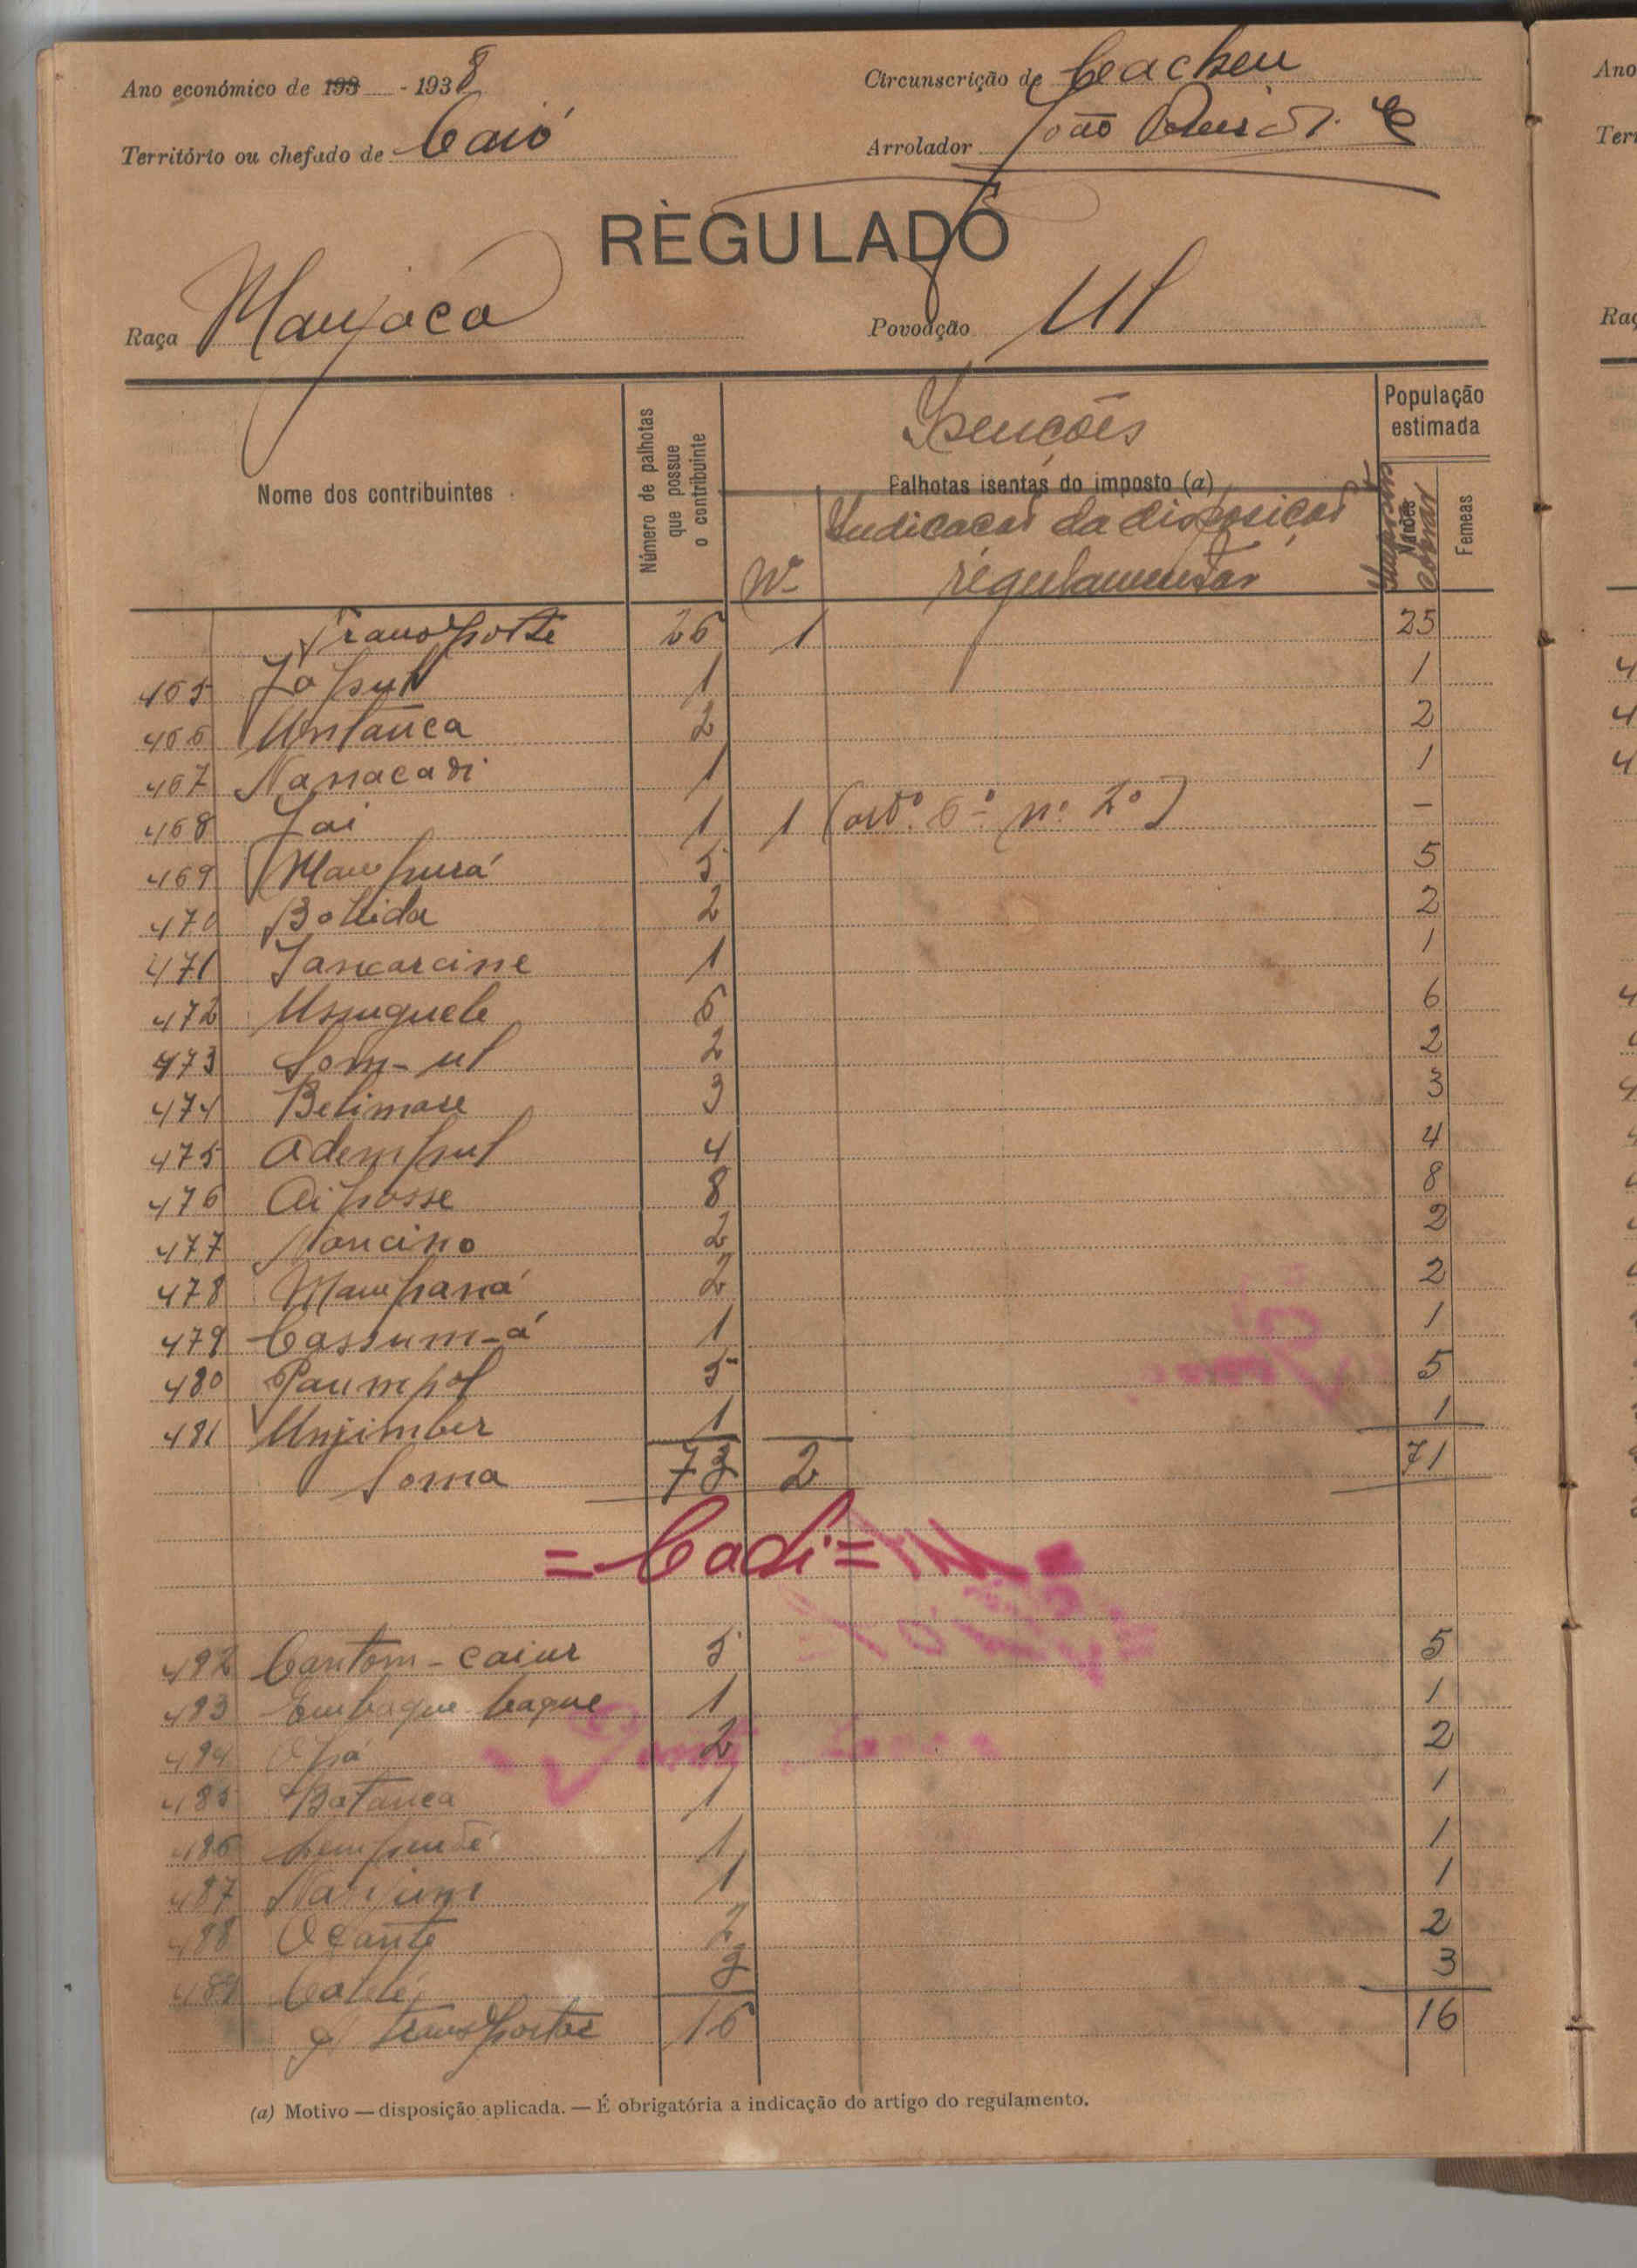 Ano económico de 193 - 1938
Circunscrição de Cacheu
Território ou chefado de Caió
Arrolador João
REGULADO
Raça Manjaca
Povoação Ul
Nome dos contribuintes
Número de palhotas que possue o contribuinte
Isenções
Palhotas isentas do imposto (a)
Nº
Indicação da disposição
regulamentar
População estimada
Machos
Femeas
Transporte 26 1 25
465 Jópul 1 1
466 Untanca 2 2
467 Nanacadi 1 1
468 Jai 1 1 (artº. 6º nº 2º) —
469 Mampurá 5 5
470 Bollida 2 2
471 Jancarcine 1 1
472 Usnuguele 6 6
473 Som-ul 2 2
474 Belimase 3 3
475 Adempul 4 4
476 Aiposse 8 8
477 Noncino 2 2
478 Mampaná 2 2
479 Cassum-á 1 1
480 Paumpol 5 5
481 Unjimber 1 1
Soma 73 2 71
= Cadi =
492 Cantom-caiur 5 5
483 Embaque-baque 1 1
484 2 2
485 Batanca 1 1
486 1 1
487 1 1
488 Ocante 2 2
489 3 3
A transportar 16 16
(a) Motivo — disposição aplicada. — É obrigatória a indicação do artigo do regulamento.